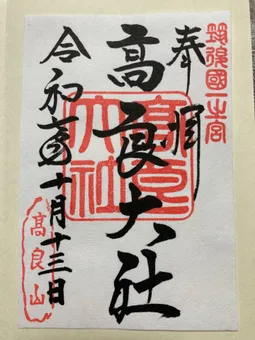 筑後國一之宮
奉拝
高良大社
高良大社
令和 十月十三日
高良山